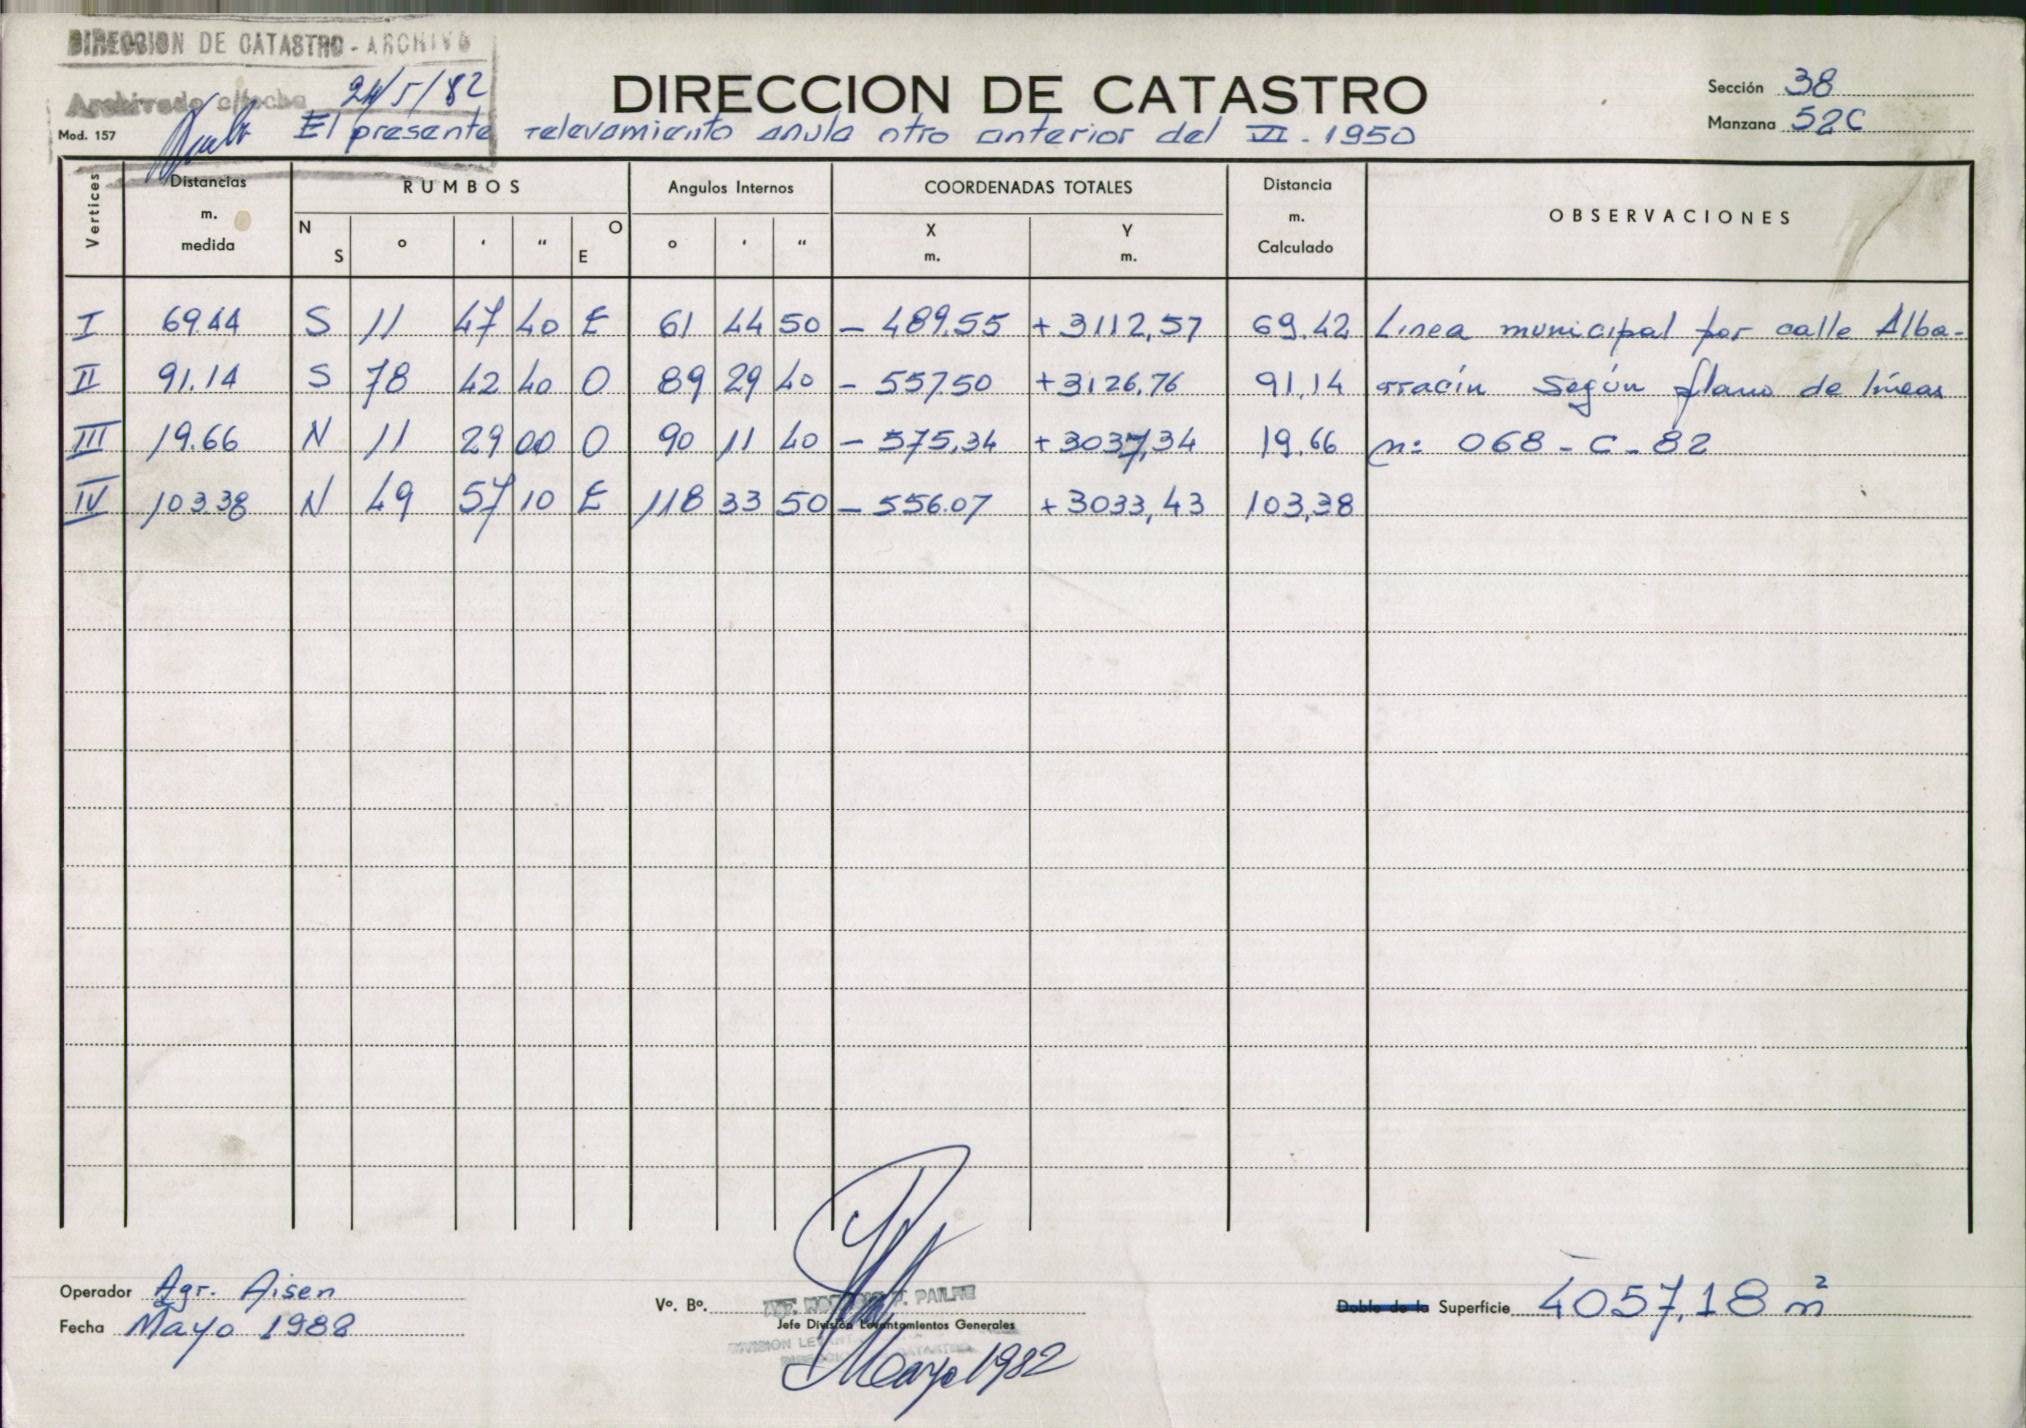 DIRECCION DE CATASTRO - ARCHIVO
Archivado c/fecha 24/5/82
DIRECCION DE CATASTRO
Sección 38
Manzana 52C
Mod. 157
El presente relevamiento anula otro anterior del VI - 1950
Vertices Distancias m. medida RUMBOS Angulos Internos COORDENADAS TOTALES Distancia m. Calculado OBSERVACIONES
N S ° ' " O E ° ' " X m. Y m.
I 69.44 S 11 47 40 E 61 44 50 - 489.55 + 3112,57 69.42 Linea municipal por calle Alba-
II 91.14 S 78 42 40 O 89 29 40 - 557.50 + 3126,76 91,14 rracín Según plano de líneas
III 19.66 N 11 29 00 O 90 11 40 - 575,34 + 3037,34 19.66 n: 068 - C - 82
IV 103.38 N 49 57 10 E 118 33 50 - 556.07 + 3033,43 103,38
Operador Agr. Aisen
Fecha Mayo 1988
Vo. Bo.
Jefe División Levantamientos Generales
Mayo 1982
Doble de la Superficie 4057,18 m²